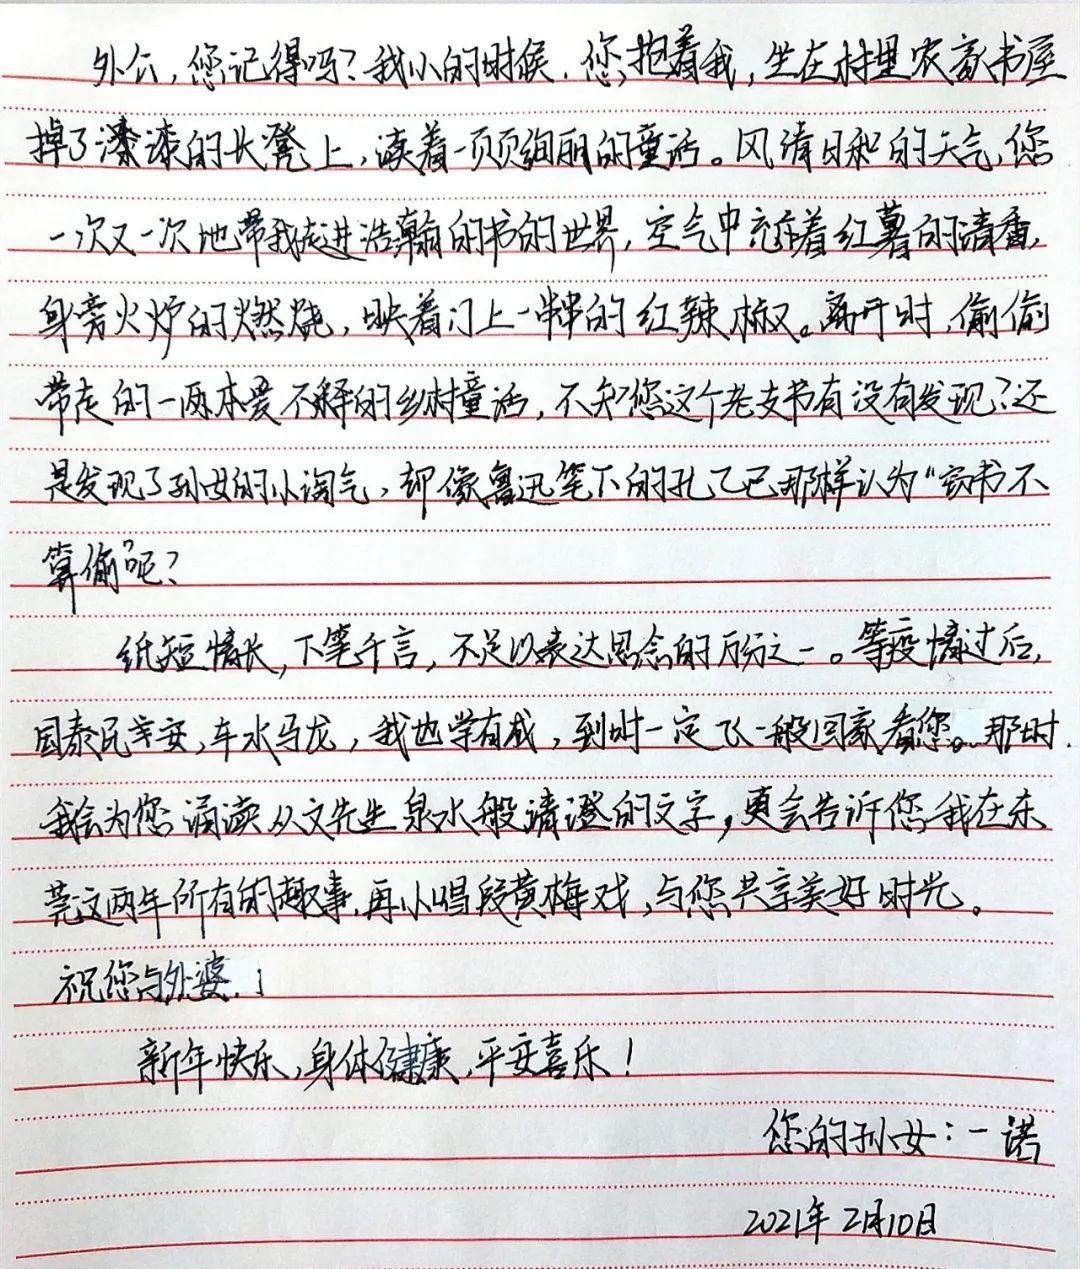 外公，您记得吗？我小的时候，您抱着我，坐在村里农家书屋
掉了漆漆的长凳上，读着一页页绚丽的童话。风清日和的天气，您
一次又一次地带我走进浩瀚的书的世界，空气中充斥着红薯的清香，
身旁火炉的燃烧，映着门上一串串的红辣椒。离开时，偷偷
带走的一两本爱不释的乡村童话，不知您这个老支书有没有发现？还
是发现了孙女的小淘气，却像鲁迅笔下的孔乙己那样认为“窃书不
算偷”呢？
纸短情长，下笔千言，不足以表达思念的万分之一。等疫情过后，
国泰民安，车水马龙，我也学有成，到时一定飞一般回家看您。那时，
我会为您诵读从文先生泉水般清澄的文字，更会告诉您我在东
莞这两年所有的趣事，再小唱段黄梅戏，与您共享美好时光。
祝您与外婆
新年快乐，身体健康，平安喜乐！
您的孙女：一诺
2021年2月10日